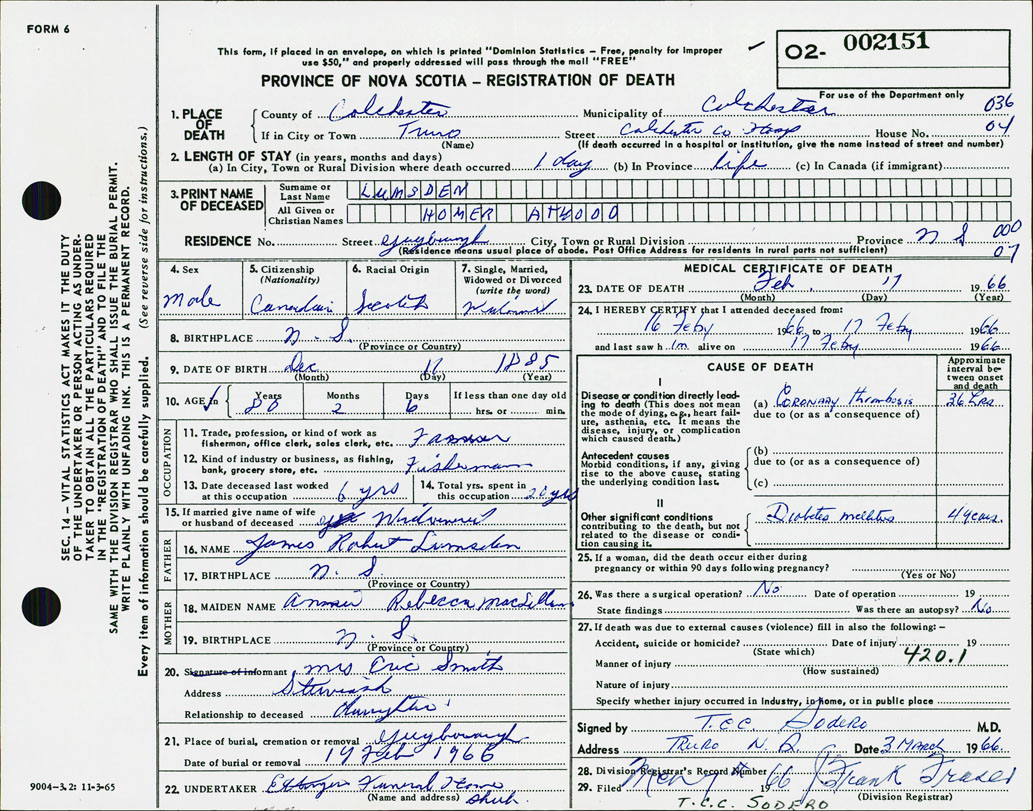 FORM 6
This form, if placed in an envelope, on which is printed "Dominion Statistics – Free, penalty for improper
use $50," and properly addressed will pass through the mail "FREE"
O2- 002151
PROVINCE OF NOVA SCOTIA – REGISTRATION OF DEATH
For use of the Department only
1. PLACE OF DEATH
County of Colchester Municipality of Colchester 036
If in City or Town Truro Street Colchester Co Hosp House No. 04
(Name) (If death occurred in a hospital or institution, give the name instead of street and number)
2. LENGTH OF STAY (in years, months and days)
(a) In City, Town or Rural Division where death occurred 1 day (b) In Province life (c) In Canada (if immigrant)
3. PRINT NAME OF DECEASED
Surname or Last Name LUMSDEN
All Given or Christian Names HOMER ATWOOD
RESIDENCE No. Street Guyborough City, Town or Rural Division Province N S 000
(Residence means usual place of abode. Post Office Address for residents in rural parts not sufficient) 07
4. Sex
Male
5. Citizenship
(Nationality)
Canadian
6. Racial Origin
Scotch
7. Single, Married,
Widowed or Divorced
(write the word)
Widowed
8. BIRTHPLACE N. S.
(Province or Country)
9. DATE OF BIRTH Dec 1885
(Month) (Day) (Year)
10. AGE in
Years Months Days If less than one day old
80 2 6 hrs. or min.
OCCUPATION
11. Trade, profession, or kind of work as
fisherman, office clerk, sales clerk, etc. Farmer
12. Kind of industry or business, as fishing,
bank, grocery store, etc. Fisherman
13. Date deceased last worked
at this occupation 6 yrs
14. Total yrs. spent in
this occupation 20 yrs
15. If married give name of wife
or husband of deceased
FATHER
16. NAME James Robert Lumsden
17. BIRTHPLACE N. S.
(Province or Country)
MOTHER
18. MAIDEN NAME Annie Rebecca MacLellan
19. BIRTHPLACE N. S.
(Province or Country)
20. Signature of informant Mrs Eric Smith
Address Stewiack
Relationship to deceased daughter
21. Place of burial, cremation or removal Guyborough
Date of burial or removal 19 Feb 1966
22. UNDERTAKER Funeral Home
(Name and address) Shub.
MEDICAL CERTIFICATE OF DEATH
23. DATE OF DEATH Feb. 17 1966
(Month) (Day) (Year)
24. I HEREBY CERTIFY that I attended deceased from:
16 Feby 1966 to 17 Feby 1966
and last saw him alive on 17 Feby 1966
CAUSE OF DEATH
Approximate
interval be-
tween onset
and death
I
Disease or condition directly lead-
ing to death (This does not mean
the mode of dying, e.g., heart fail-
ure, asthenia, etc. It means the
disease, injury, or complication
which caused death.)
(a) Coronary thrombosis 36 hrs
due to (or as a consequence of)
Antecedent causes
Morbid conditions, if any, giving
rise to the above cause, stating
the underlying condition last.
(b)
due to (or as a consequence of)
(c)
II
Other significant conditions
contributing to the death, but not
related to the disease or condi-
tion causing it.
Diabetes mellitus 4 years.
25. If a woman, did the death occur either during
pregnancy or within 90 days following pregnancy?
(Yes or No)
26. Was there a surgical operation? No Date of operation 19
State findings Was there an autopsy? No
27. If death was due to external causes (violence) fill in also the following: –
Accident, suicide or homicide? Date of injury 19
(State which) 420.1
Manner of injury
(How sustained)
Nature of injury
Specify whether injury occurred in Industry, in home, or in public place
Signed by T.C.C. Sodero M.D.
Address Truro N.S. Date 3 March 1966.
28. Division Registrar's Record Number
29. Filed 1966 Frank Fraser
(Division Registrar)
T.C.C. SODERO
SEC. 14 – VITAL STATISTICS ACT MAKES IT THE DUTY
OF THE UNDERTAKER OR PERSON ACTING AS UNDER-
TAKER TO OBTAIN ALL THE PARTICULARS REQUIRED
IN THE "REGISTRATION OF DEATH" AND TO FILE THE
SAME WITH THE DIVISION REGISTRAR WHO SHALL ISSUE THE BURIAL PERMIT.
WRITE PLAINLY WITH UNFADING INK. THIS IS A PERMANENT RECORD.
Every item of information should be carefully supplied. (See reverse side for instructions.)
9004–3.2: 11-3-65